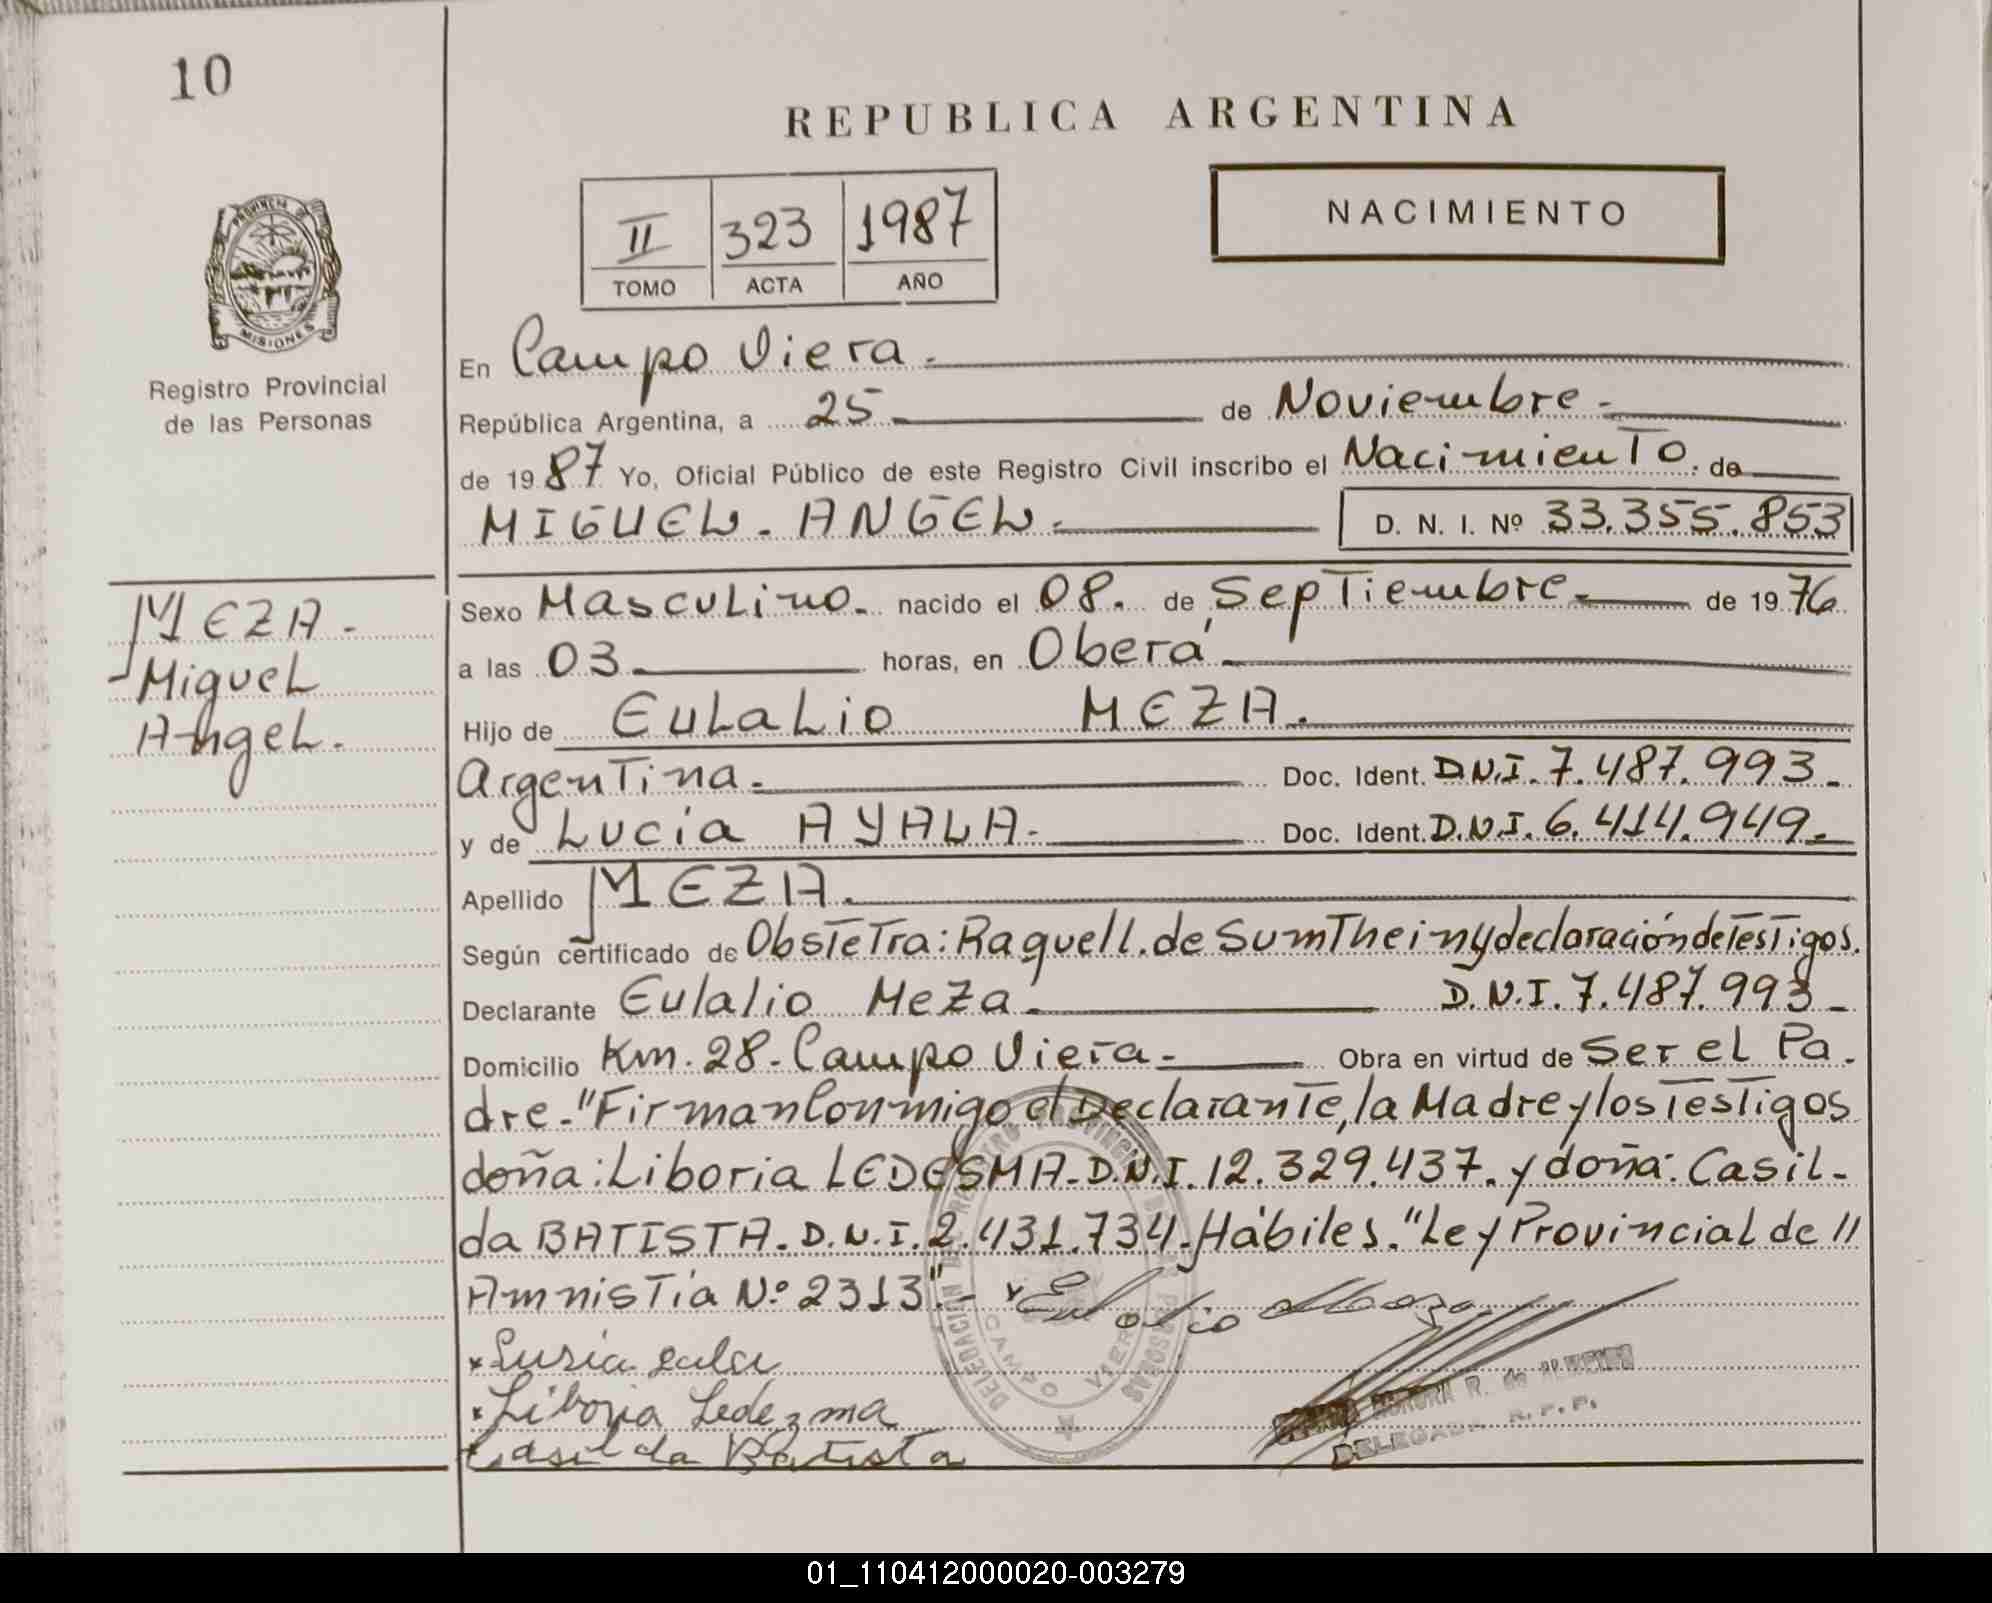 10
REPUBLICA ARGENTINA
NACIMIENTO
II 323 1987
TOMO ACTA AÑO
PROVINCIA DE
MISIONES
Registro Provincial
de las Personas
En Campo Viera.
República Argentina, a 25 de Noviembre.
de 1987 Yo, Oficial Público de este Registro Civil inscribo el Nacimiento. de
MIGUEL. ANGEL. D. N. I. Nº 33.355.853
MEZA.
Miguel
Angel.
Sexo Masculino. nacido el 08. de Septiembre. de 1976
a las 03 horas, en Oberá
Hijo de Eulalio MEZA.
Argentina. Doc. Ident. D.N.I. 7.487.993.
y de Lucia AYALA. Doc. Ident. D.N.I. 6.414.949.
Apellido MEZA.
Según certificado de Obstetra: Raquel l. de Sumthein y declaración de Testigos.
Declarante Eulalio Meza D.N.I. 7.487.993
Domicilio Km. 28. Campo Viera. Obra en virtud de Ser el Pa.
dre. "Firman Conmigo el Declarante, la Madre y los Testigos
doña: Liboria LEDESMA. D.N.I. 12.329.437. y doña: Casil-
da BATISTA. D.N.I. 2.431.734. Hábiles. "Ley Provincial de "
Amnistia Nº 2313".- x Eulalio Meza
x Lusia
x Liboria Ledezma
x Casilda Batista
DELEGACION DEL REGISTRO PROVINCIAL DE LAS PERSONAS
CAMPO VIERA
R. de
DELEGADA R. P. P.
01_110412000020-003279